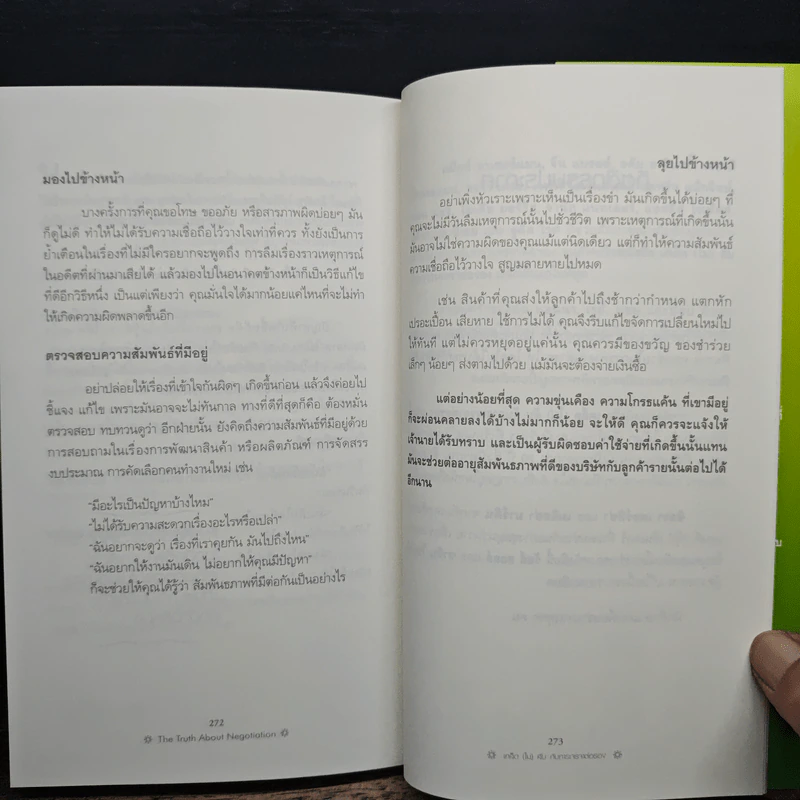 มองไปข้างหน้า
บางครั้งการที่คุณขอโทษ ขออภัย หรือสารภาพผิดบ่อยๆ มัน
ก็ดูไม่ดี ทำให้ไม่ได้รับความเชื่อถือไว้วางใจเท่าที่ควร ทั้งยังเป็นการ
ย้ำเตือนในเรื่องที่ไม่มีใครอยากจะพูดถึง การลืมเรื่องราวเหตุการณ์
ในอดีตที่ผ่านมาเสียได้ แล้วมองไปในอนาคตข้างหน้าก็เป็นวิธีแก้ไข
ที่ดีอีกวิธีหนึ่ง เป็นแต่เพียงว่า คุณมั่นใจได้มากน้อยแค่ไหนที่จะไม่ทำ
ให้เกิดความผิดพลาดขึ้นอีก
ตรวจสอบความสัมพันธ์ที่มีอยู่
อย่าปล่อยให้เรื่องที่เข้าใจกันผิดๆ เกิดขึ้นก่อน แล้วจึงค่อยไป
ชี้แจง แก้ไข เพราะมันอาจจะไม่ทันกาล ทางที่ดีที่สุดก็คือ ต้องหมั่น
ตรวจสอบ ทบทวนดูว่า อีกฝ่ายนั้น ยังคิดถึงความสัมพันธ์ที่มีอยู่ด้วย
การสอบถามในเรื่องการพัฒนาสินค้า หรือผลิตภัณฑ์ การจัดสรร
งบประมาณ การคัดเลือกคนทำงานใหม่ เช่น
"มีอะไรเป็นปัญหาบ้างไหม"
"ไม่ได้รับความสะดวกเรื่องอะไรหรือเปล่า"
"ฉันอยากจะดูว่า เรื่องที่เราคุยกัน มันไปถึงไหน"
"ฉันอยากให้งานมันเดิน ไม่อยากให้คุณมีปัญหา"
ก็จะช่วยให้คุณได้รู้ว่า สัมพันธภาพที่มีต่อกันเป็นอย่างไร
272
The Truth About Negotiation
ลุยไปข้างหน้า
อย่าเพิ่งหัวเราะเพราะเห็นเป็นเรื่องขำ มันเกิดขึ้นได้บ่อยๆ ที่
คุณจะไม่มีวันลืมเหตุการณ์นั้นไปชั่วชีวิต เพราะเหตุการณ์ที่เกิดขึ้นนั้น
มันอาจไม่ใช่ความผิดของคุณแม้แต่นิดเดียว แต่ก็ทำให้ความสัมพันธ์
ความเชื่อถือไว้วางใจ สูญมลายหายไปหมด
เช่น สินค้าที่คุณส่งให้ลูกค้าไปถึงช้ากว่ากำหนด แตกหัก
เปรอะเปื้อน เสียหาย ใช้การไม่ได้ คุณจึงรีบแก้ไขจัดการเปลี่ยนใหม่ไป
ให้ทันที แต่ไม่ควรหยุดอยู่แค่นั้น คุณควรมีของขวัญ ของชำร่วย
เล็กๆ น้อยๆ ส่งตามไปด้วย แม้มันจะต้องจ่ายเงินซื้อ
แต่อย่างน้อยที่สุด ความขุ่นเคือง ความโกรธแค้น ที่เขามีอยู่
ก็จะผ่อนคลายลงได้บ้างไม่มากก็น้อย จะให้ดี คุณก็ควรจะแจ้งให้
เจ้านายได้รับทราบ และเป็นผู้รับผิดชอบค่าใช้จ่ายที่เกิดขึ้นนั้นแทน
มันจะช่วยต่ออายุสัมพันธภาพที่ดีของบริษัทกับลูกค้ารายนั้นต่อไปได้
อีกนาน
273